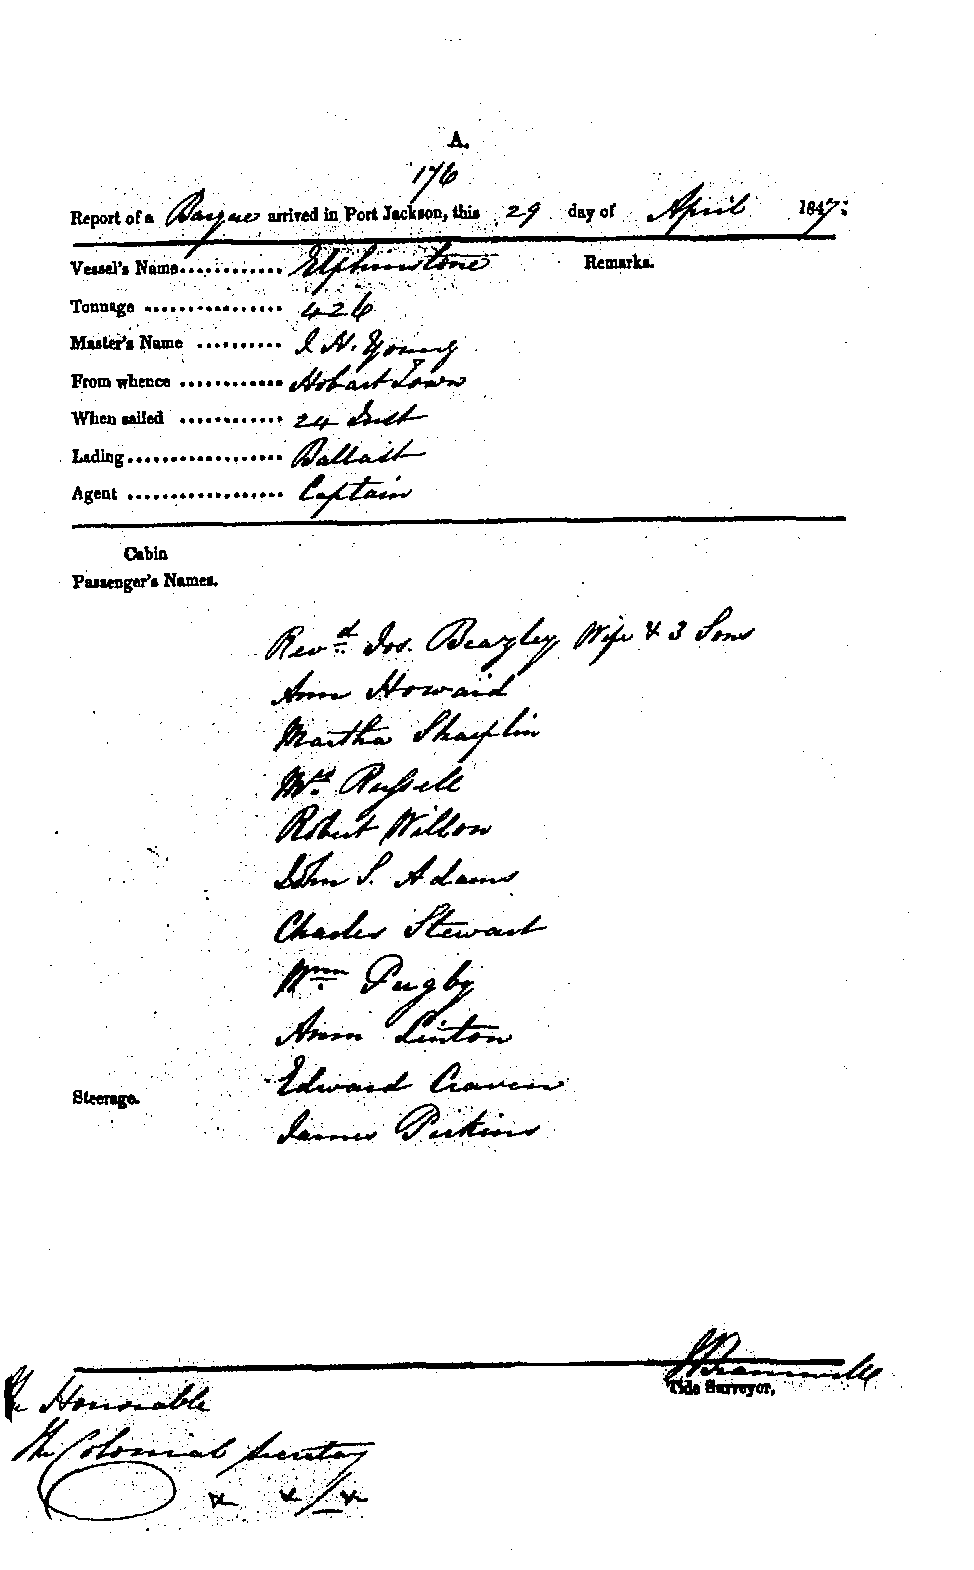 A.
176
Report of a Barque arrived in Port Jackson, this 29 day of April 1847:
Vessel's Name............ Elphinstone Remarks.
Tonnage ................ 426
Master's Name .......... J H. Young
From whence ............ Hobart Town
When sailed ............ 24 Inst
Lading.................. Ballast
Agent .................. Captain
Cabin
Passenger's Names.
Revd Jos. Beazley Wife & 3 Sons
Ann Howard
Martha Shaplin
Mrs Russell
Robert Willon
John S. Adams
Charles Stewart
Wm Pugby
Ann Linton
Edward Craven
Steerage.
James Perkins
Tide Surveyor,
The Honorable
the Colonial Secretary
& &/&